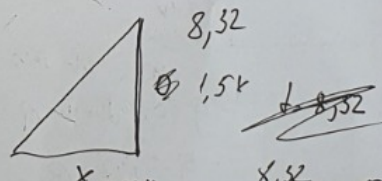 8,32
1,5x
8,32
x